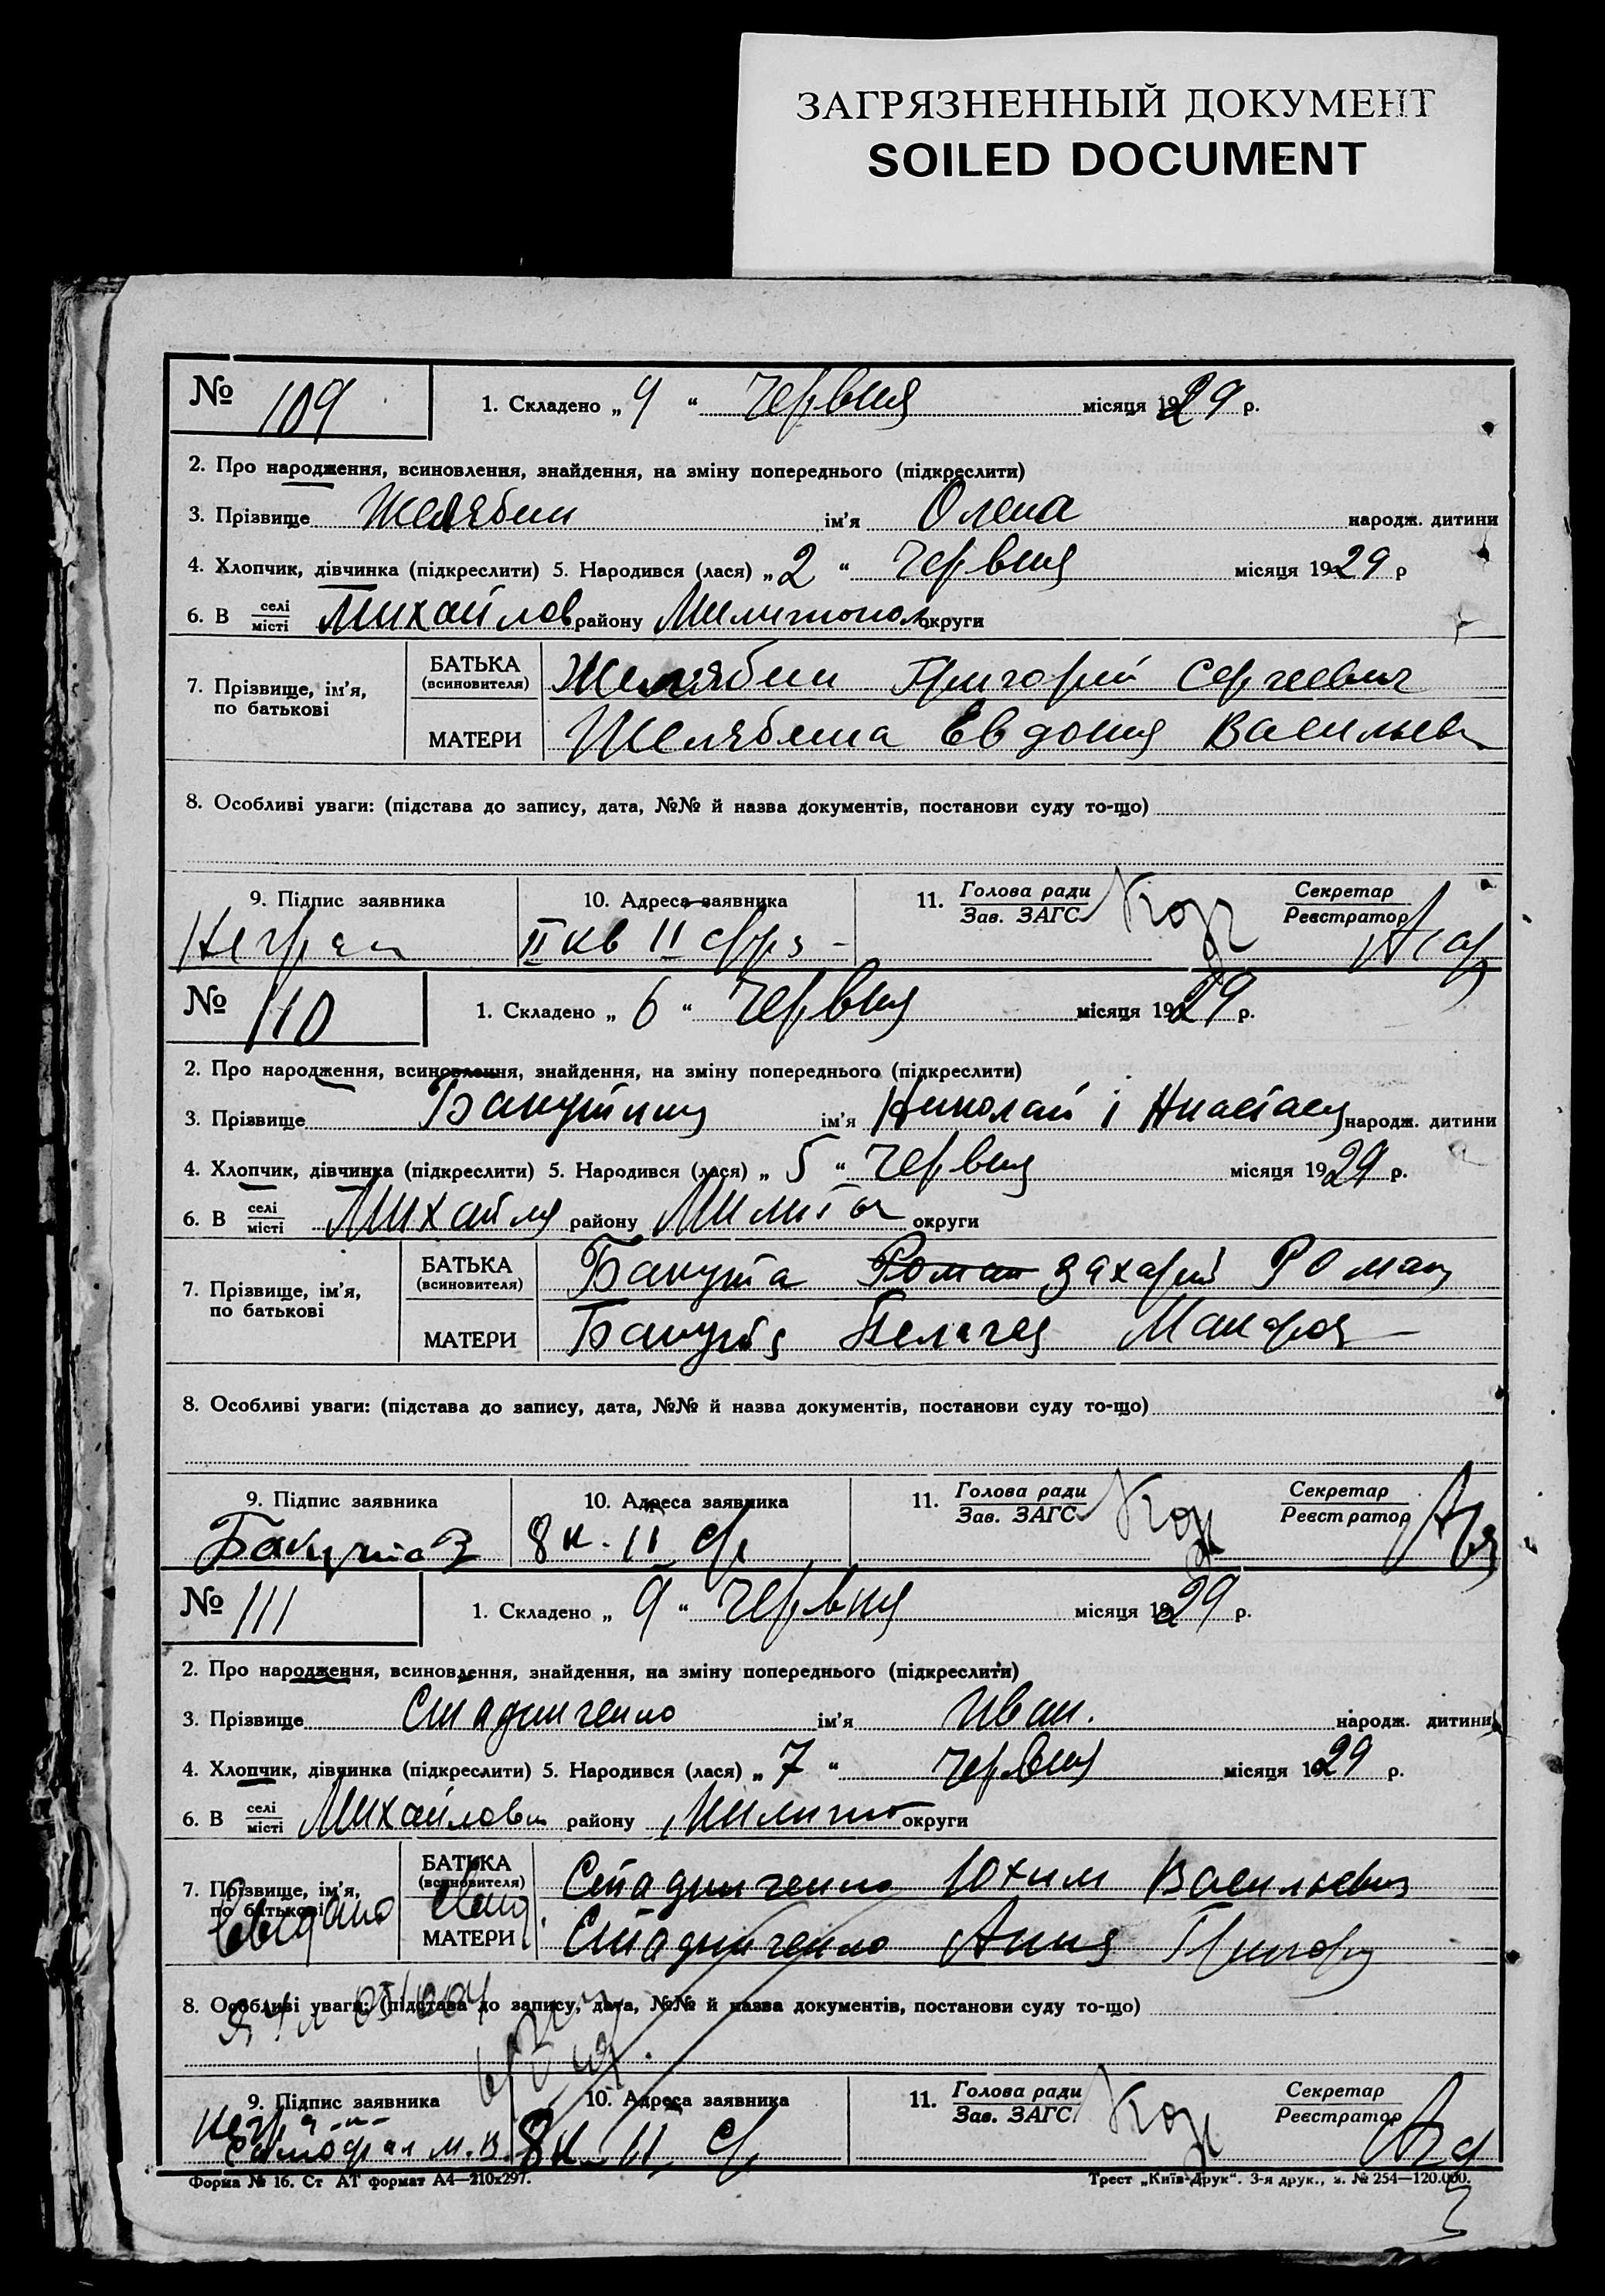 ЗАГРЯЗНЕННЫЙ ДОКУМЕНТ
SOILED DOCUMENT
№ 109 1. Складено „ 9 “ червня місяця 1929 р.
2. Про народження, всиновлення, знайдення, на зміну попереднього (підкреслити)
3. Прізвище Желябин ім’я Олена народж. дитини
4. Хлопчик, дівчинка (підкреслити) 5. Народився (лася) „ 2 “ червня місяця 1929 р
6. В селі місті Михайлов району Милитопол округи
7. Прізвище, ім’я, по батькові
БАТЬКА (всиновителя) Желябин Григорий Сергеевич
МАТЕРИ Желябина Евдокия Васильев
8. Особливі уваги: (підстава до запису, дата, №№ й назва документів, постанови суду то-що)
9. Підпис заявника 10. Адреса заявника 11. Голова ради Зав. ЗАГС Секретар Реєстратор
II кв II
№ 110 1. Складено „ 6 “ червня місяця 1929 р.
2. Про народження, всиновлення, знайдення, на зміну попереднього (підкреслити)
3. Прізвище ім’я Николай і народж. дитини
4. Хлопчик, дівчинка (підкреслити) 5. Народився (лася) „ 5 “ червня місяця 1929 р.
6. В селі місті Михайл району Милит округи
7. Прізвище, ім’я, по батькові
БАТЬКА (всиновителя) Бакута Роман Захарий Роман
МАТЕРИ Пелагея Макаров
8. Особливі уваги: (підстава до запису, дата, №№ й назва документів, постанови суду то-що)
9. Підпис заявника 10. Адреса заявника 11. Голова ради Зав. ЗАГС Секретар Реєстратор
Бакута З 8 к. II
№ 111 1. Складено „ 9 “ червня місяця 1929 р.
2. Про народження, всиновлення, знайдення, на зміну попереднього (підкреслити)
3. Прізвище Стадниченко ім’я Иван. народж. дитини
4. Хлопчик, дівчинка (підкреслити) 5. Народився (лася) „ 7 “ червня місяця 1929 р.
6. В селі місті Михайлов району Милито округи
7. Прізвище, ім’я, по батькові
БАТЬКА (всиновителя) Стадниченко Юхим Васильевич
МАТЕРИ Стадниченко Анна Григор
8. Особливі уваги: (підстава до запису, дата, №№ й назва документів, постанови суду то-що)
9. Підпис заявника 10. Адреса заявника 11. Голова ради Зав. ЗАГС Секретар Реєстратор
8 к. II
Форма № 16. Ст АТ формат А4—210х297. Трест „Київ-Друк“. 3-я друк., з. № 254—120.000.